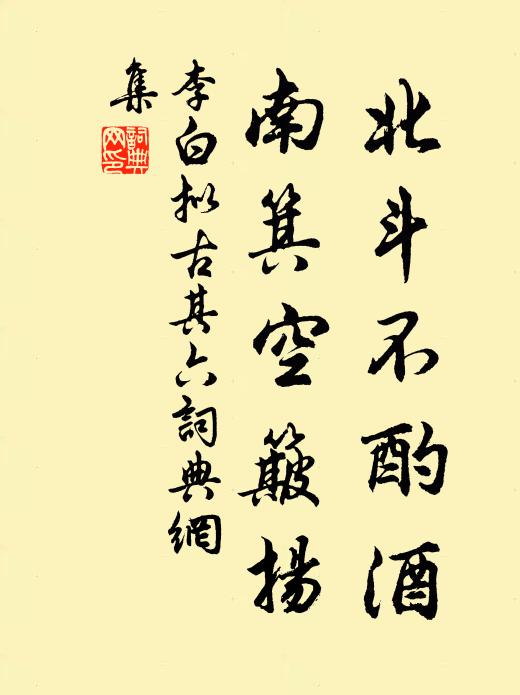 北斗不酌酒
南箕空簸揚
李白拟古其六詞典網
集
詞典
网印